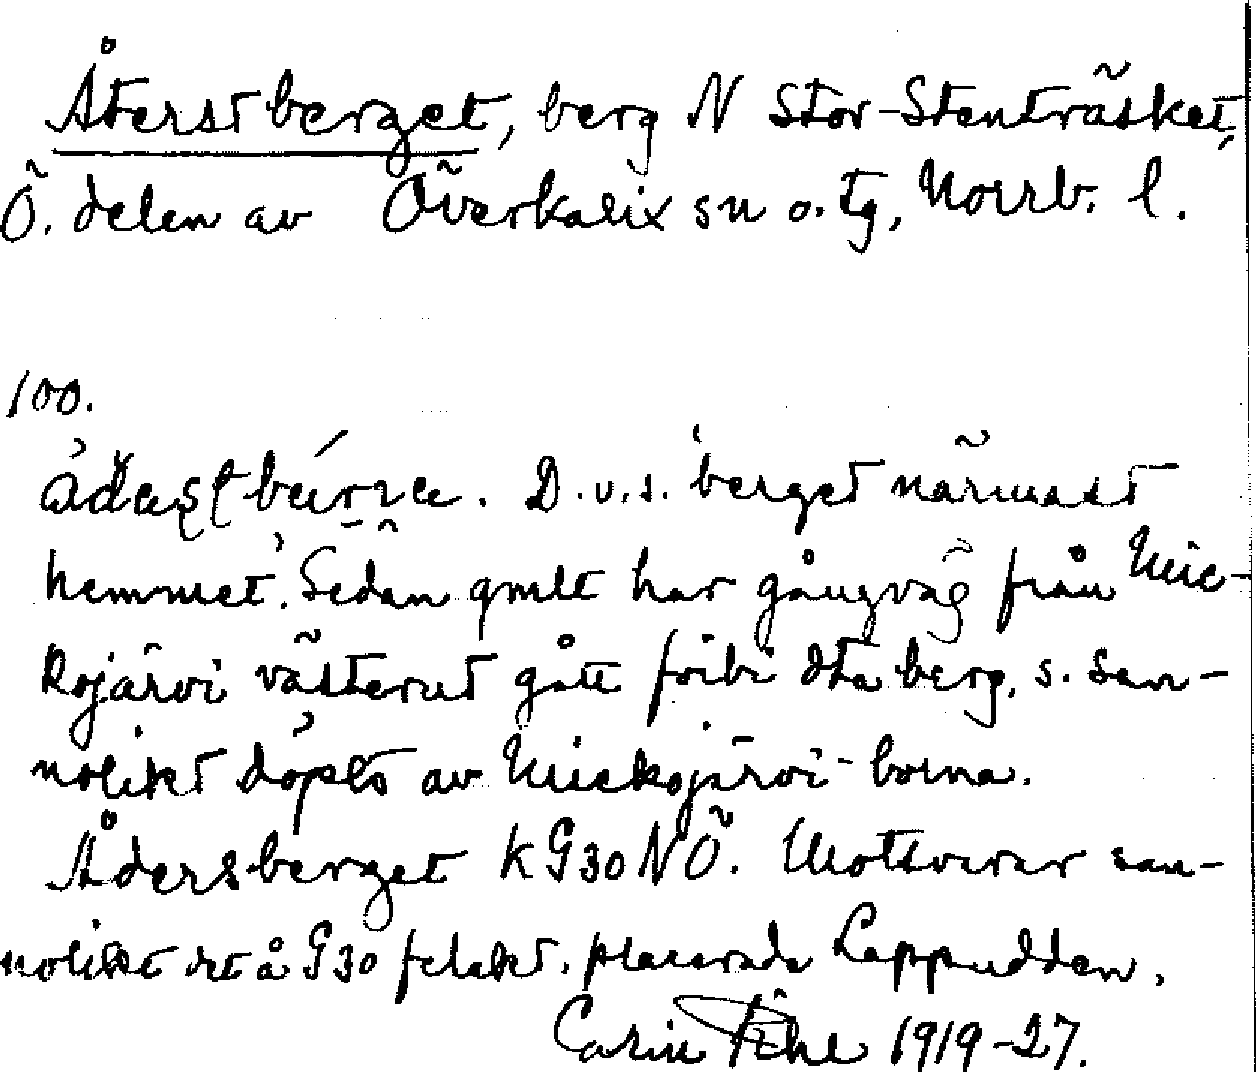 Återstberget, berg N Stor-Stenträsket,
Ö. delen av Överkalix sn o. tg, Norrb. l.
100.
D.v.s. 'berget närmast
hemmet'. Sedan gmlt har gångväg från Mic-
kojärvi västerut gått förbi dta berg, s. san-
nolikt döpts av Mickojärvi-borna.
Ådersberget KG30NÖ. Motsvarar san-
nolikt det å G30 felakt. placerade Lappudden.
Carin Pihl 1919-27.